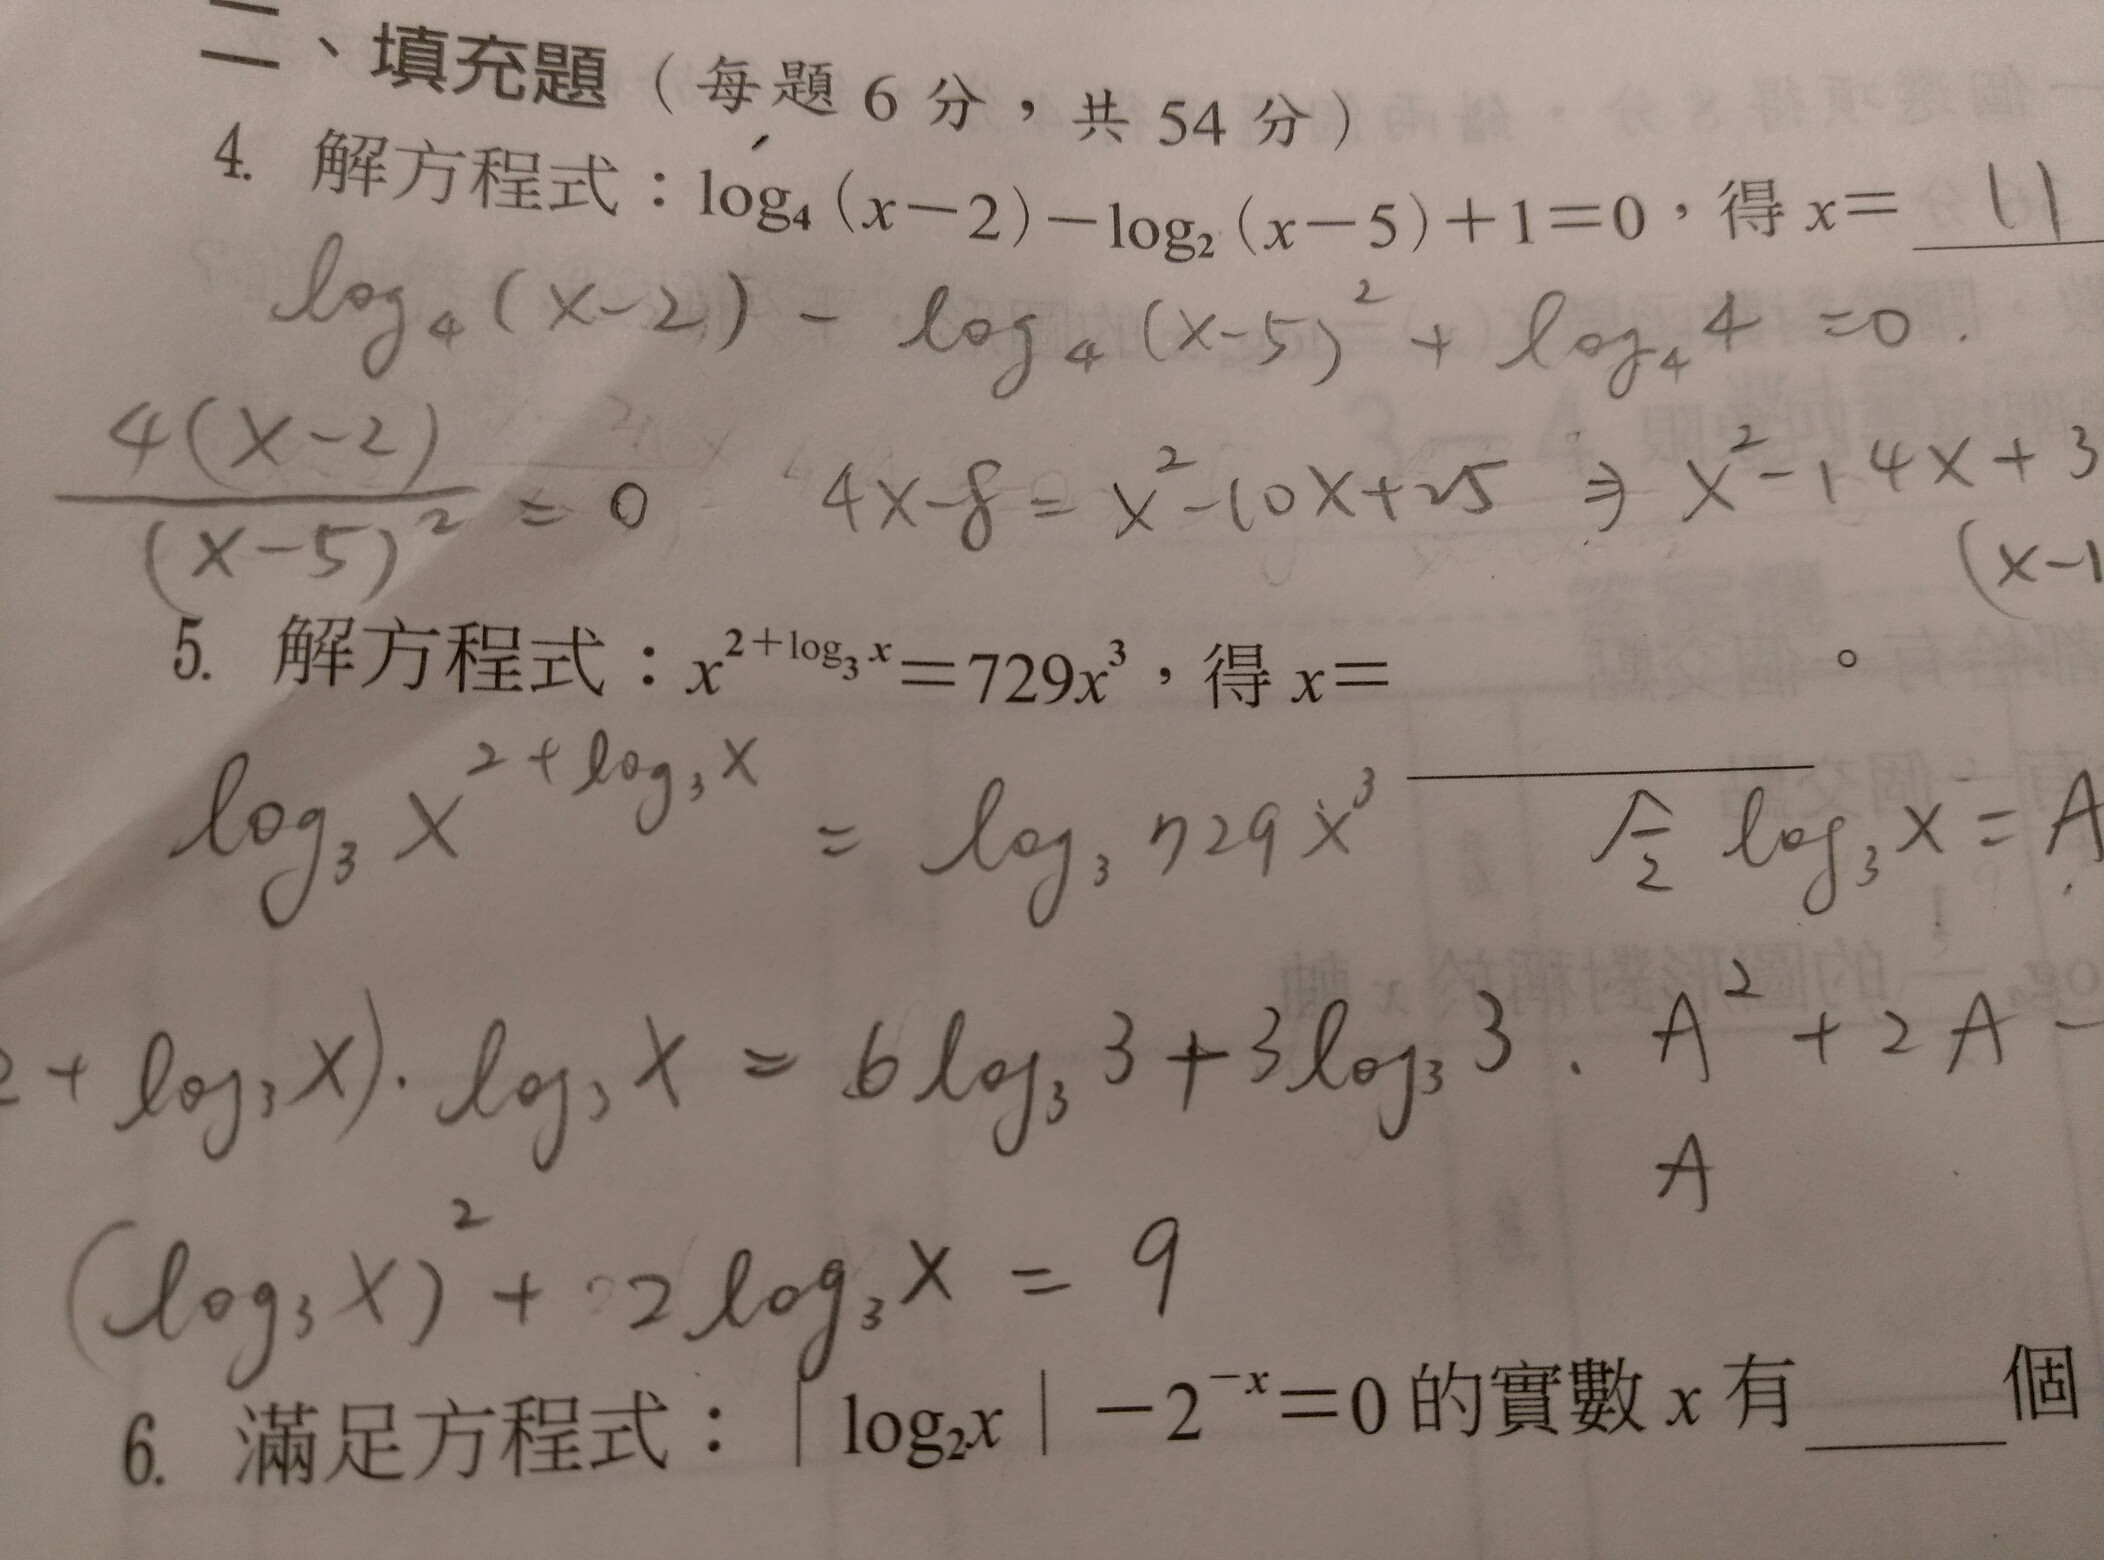 二、填充題（每題 6 分，共 54 分）
4. 解方程式：log₄（x－2）－log₂（x－5）＋1＝0，得 x＝ 11
log₄(x-2) - log₄(x-5)² + log₄4 =0.
4(x-2)/(x-5)² = 0   4x-8 = x²-10x+25 ⇒ x²-14x+3
(x-1
5. 解方程式：x^(2+log₃x)＝729x³，得 x＝ 。
log₃x^(2+log₃x) = log₃729x³   令 log₃x=A
2+log₃x)·log₃x = 6log₃3+3log₃3.   A²+2A-
A
(log₃x)²+2log₃x = 9
6. 滿足方程式：｜log₂x｜－2^(－x)＝0 的實數 x 有 個